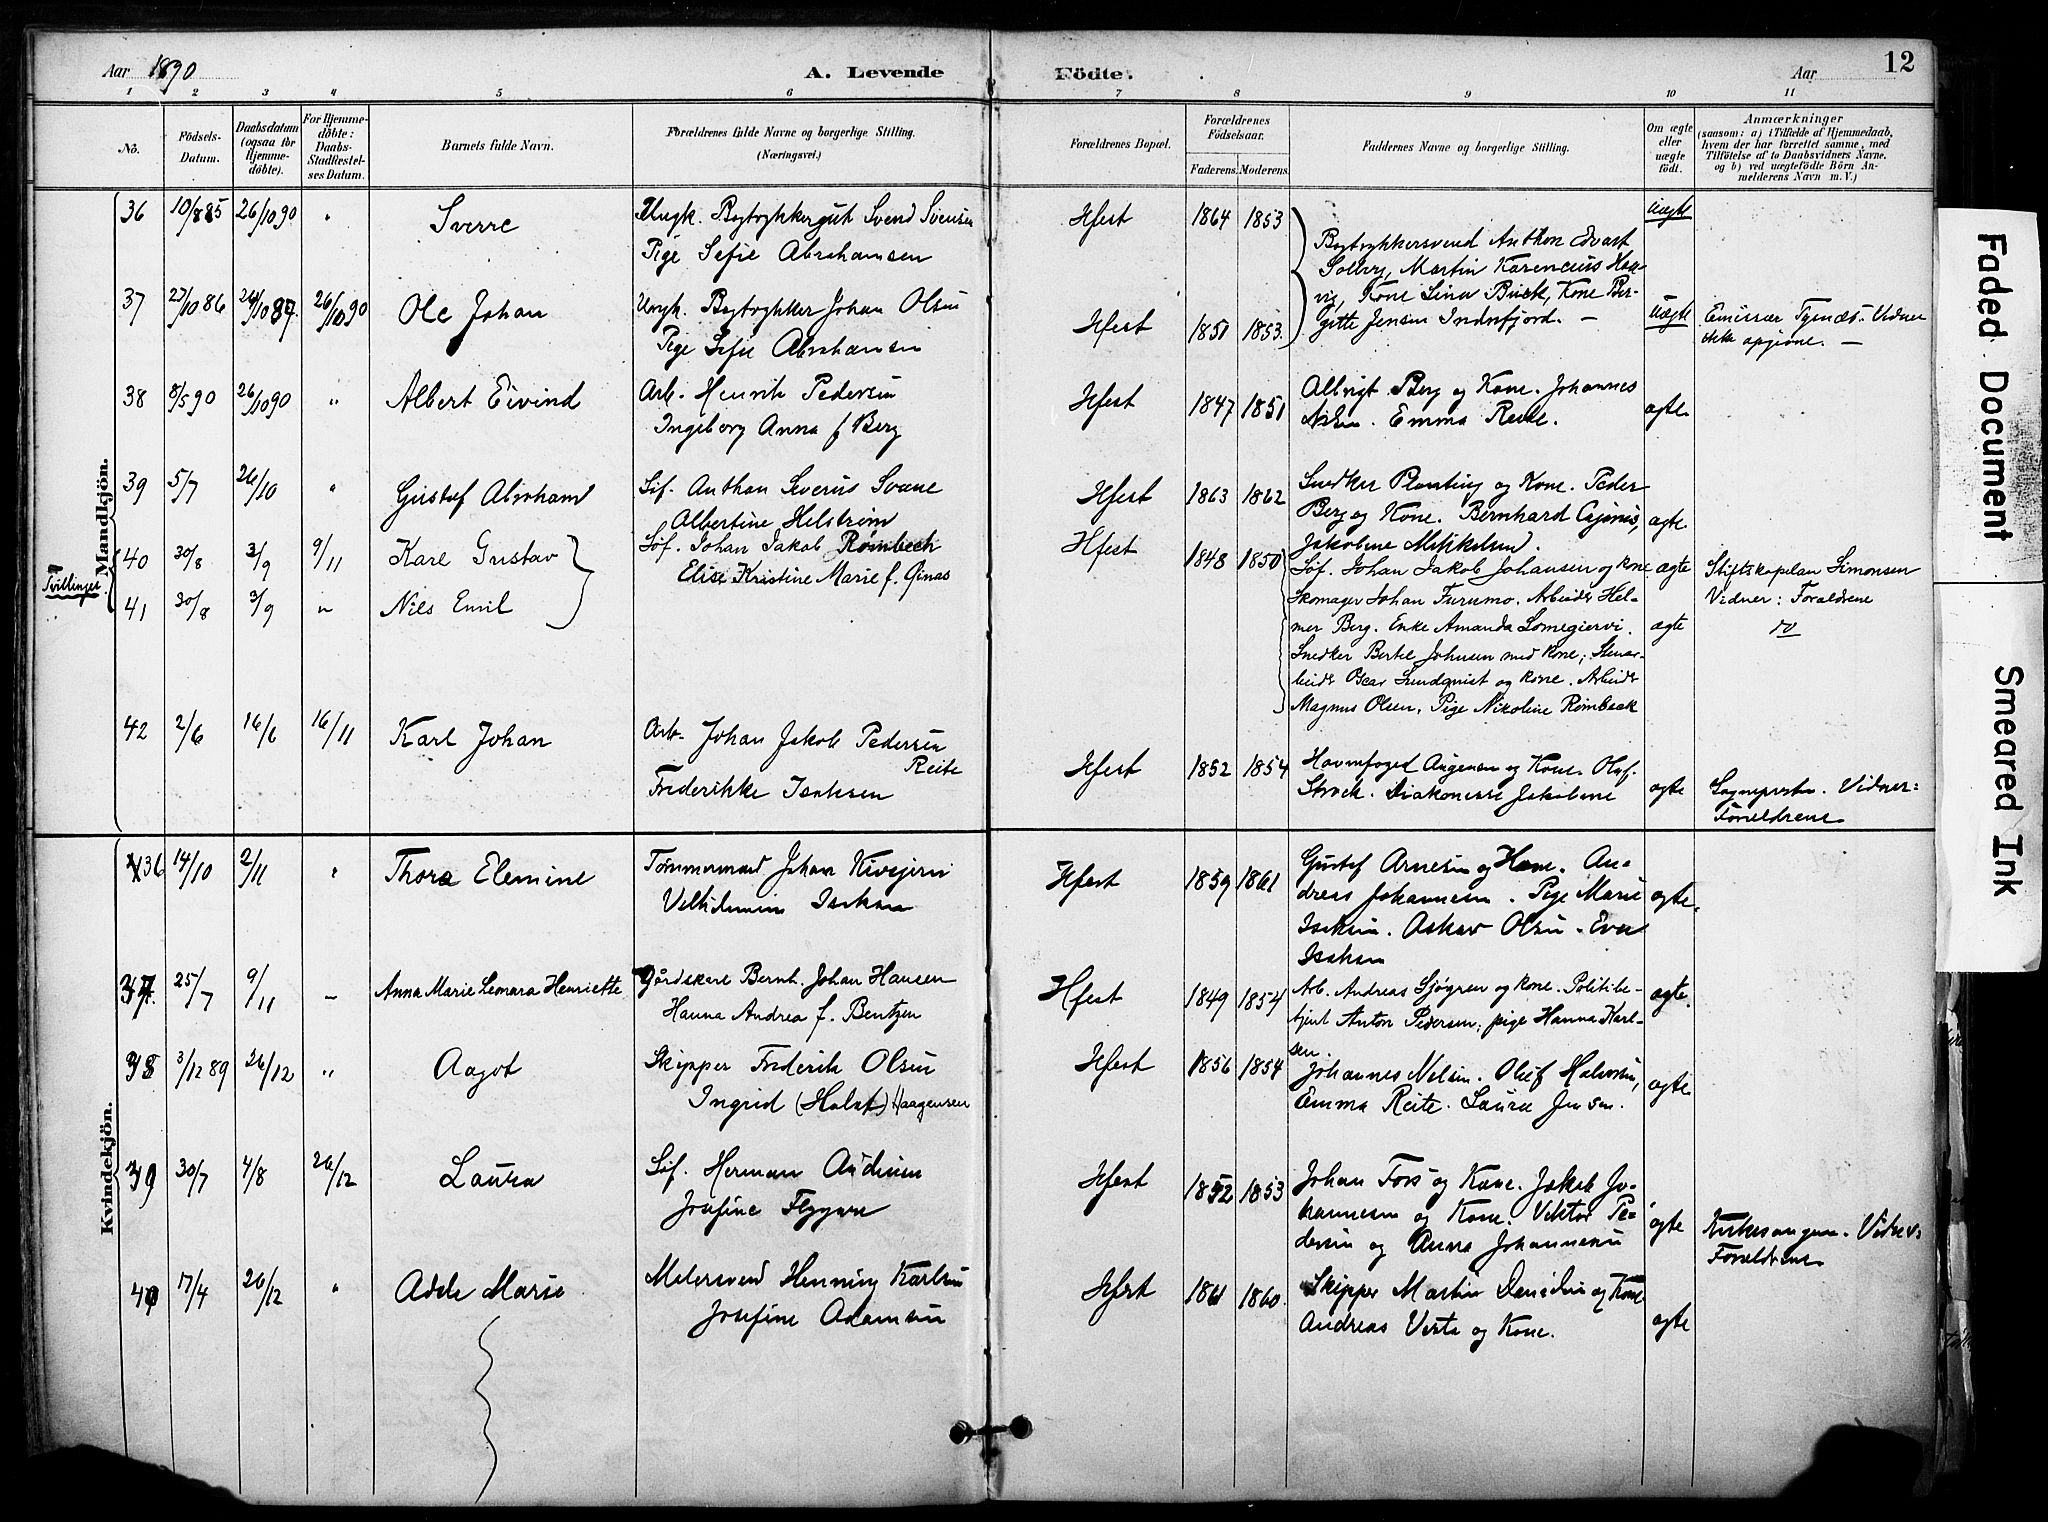 Aar 1890
A. Levende
Födte.
Aar
12
1 2 3 4 5 6 7 8 9 10 11
No.
Födsels-Datum.
Daabsdatum (ogsaa for Hjemmedöbte).
For Hjemmedöbte: Daabs-Stadfæstelses Datum.
Barnets fulde Navn.
Forældrenes fulde Navne og borgerlige Stilling.
(Næringsvei.)
Forældrenes Bopæl.
Forældrenes Födselsaar.
Faderens. Moderens.
Faddernes Navne og borgerlige Stilling.
Om ægte eller uægte födt.
Anmærkninger
(saasom: a) i Tilfælde af Hjemmedaab,
hvem der har forrettet samme, med
Tilföielse af to Daabsvidners Navne.
og b) ved uægtefödte Börn Anmelderens Navn m. V.)
Mandkjön.
36 10/8 85 26/10 90 " Sverre
Ungk. Bogtrykkergut Svend Svensen
Pige Sofie Abrahamsen
Hfest 1864 1853
Bogtrykkersvend Anthon Edvart
Solberg, Martin Karencius
Kone Lina Buck, Kone Bergitte Jensen Indrefjord. —
Uægte
37 27/10 86 10 87. 26/10 90 Ole Johan
Ungk. Bogtrykker Johan Olsen
Pige Sofie Abrahamsen
Hfest 1851 1853.
Uægte
Emissær Tynæs. Vidner
ikke opgivne. —
38 8/5 90 26/10 90 " Albert Eivind
Arb. Henrik Pedersen
Ingeborg Anna f Berg
Hfest 1847 1851
Albrigt Berg og Kone. Johannes
Nilsen. Emma Reite.
ægte
39 5/7 26/10 " Gustaf Abraham
Sjf. Anthon Severus Svane
Albertine Helstrøm
Hfest 1863 1862
Snedker Planting og Kone. Peder
Berg og Kone. Bernhard
Jakobine Mikkelsen.
ægte
Tvillinger
40 30/8 3/9 9/11 Karl Gustav
41 30/8 3/9 " Nils Emil
Søf. Johan Jakob Rømbech
Elise Kristine Marie f. Qinas
Hfest 1848 1850
Søf. Johan Jakob Johansen og kone
Skomager Johan Furumo. Arbeider Helmer Berg. Enke Amanda Lomegiervi.
Snedker Bertel Johnsen med kone; Stenarbeider Oscar Lundqvist og kone. Arbeider
Magnus Olsen, Pige Nikoline Rømbaak
ægte
ægte
Stiftskapelan Simonsen
Vidner: Forældrene
do
42 2/6 16/6 16/11 Karl Johan
Arb. Johan Jakob Pedersen
Reite
Frederikke Isaksen
Hfest 1852 1854
Havnefoged Aagensen og Kone. Oluf
Strøck. Diakonesse Jakobine
ægte
Sognepresten. Vidner:
Forældrene
Kvindekjön.
36 14/10 2/11 " Thora Elemine
Tømmermand Johan Kivijervi
Vilhelmine Isaksen
Hfest 1859 1861
Gustaf Arnesen og Kone. Andreas Johannesen. Pige Marie
Isaksen. Oskar Olsen. Eva
Isaksen
ægte.
37. 25/7 9/11 — Anna Marie Leonora Henriette
Gårdskarl Bernh. Johan Hansen
Hanna Andrea f. Bentzen
Hfest 1849 1854
Arb. Andreas Sjøgren og kone. Politibetjent Anton Pedersen; pige Hanna Karlsen.
ægte.
38 3/12 89 26/12 " Aagot
Skipper Frederik Olsen
Ingrid (Holst) Haagensen
Hfest 1856 1854
Johannes Nilsen. Oluf Halvorsen,
Emma Reite. Laura Jensen.
ægte
39 30/7 4/8 26/12 Laura
Søf. Herman Andersen
Josefine Flygare
Hfest 1852 1853
Johan Fors og Kone. Jakob Johannesen og Kone. Viktor Pedersen og Anna Johannesen
ægte
Kirkesangeren. Vidner:
Forældrene
40 17/4 26/12 " Adele Marie
Malersvend Henning Karlsen
Josefine Adamsen
Hfest 1861 1860.
Skipper Martin Danielsen og Kone
Andreas Verta og Kone.
ægte
Faded Document
Smeared Ink